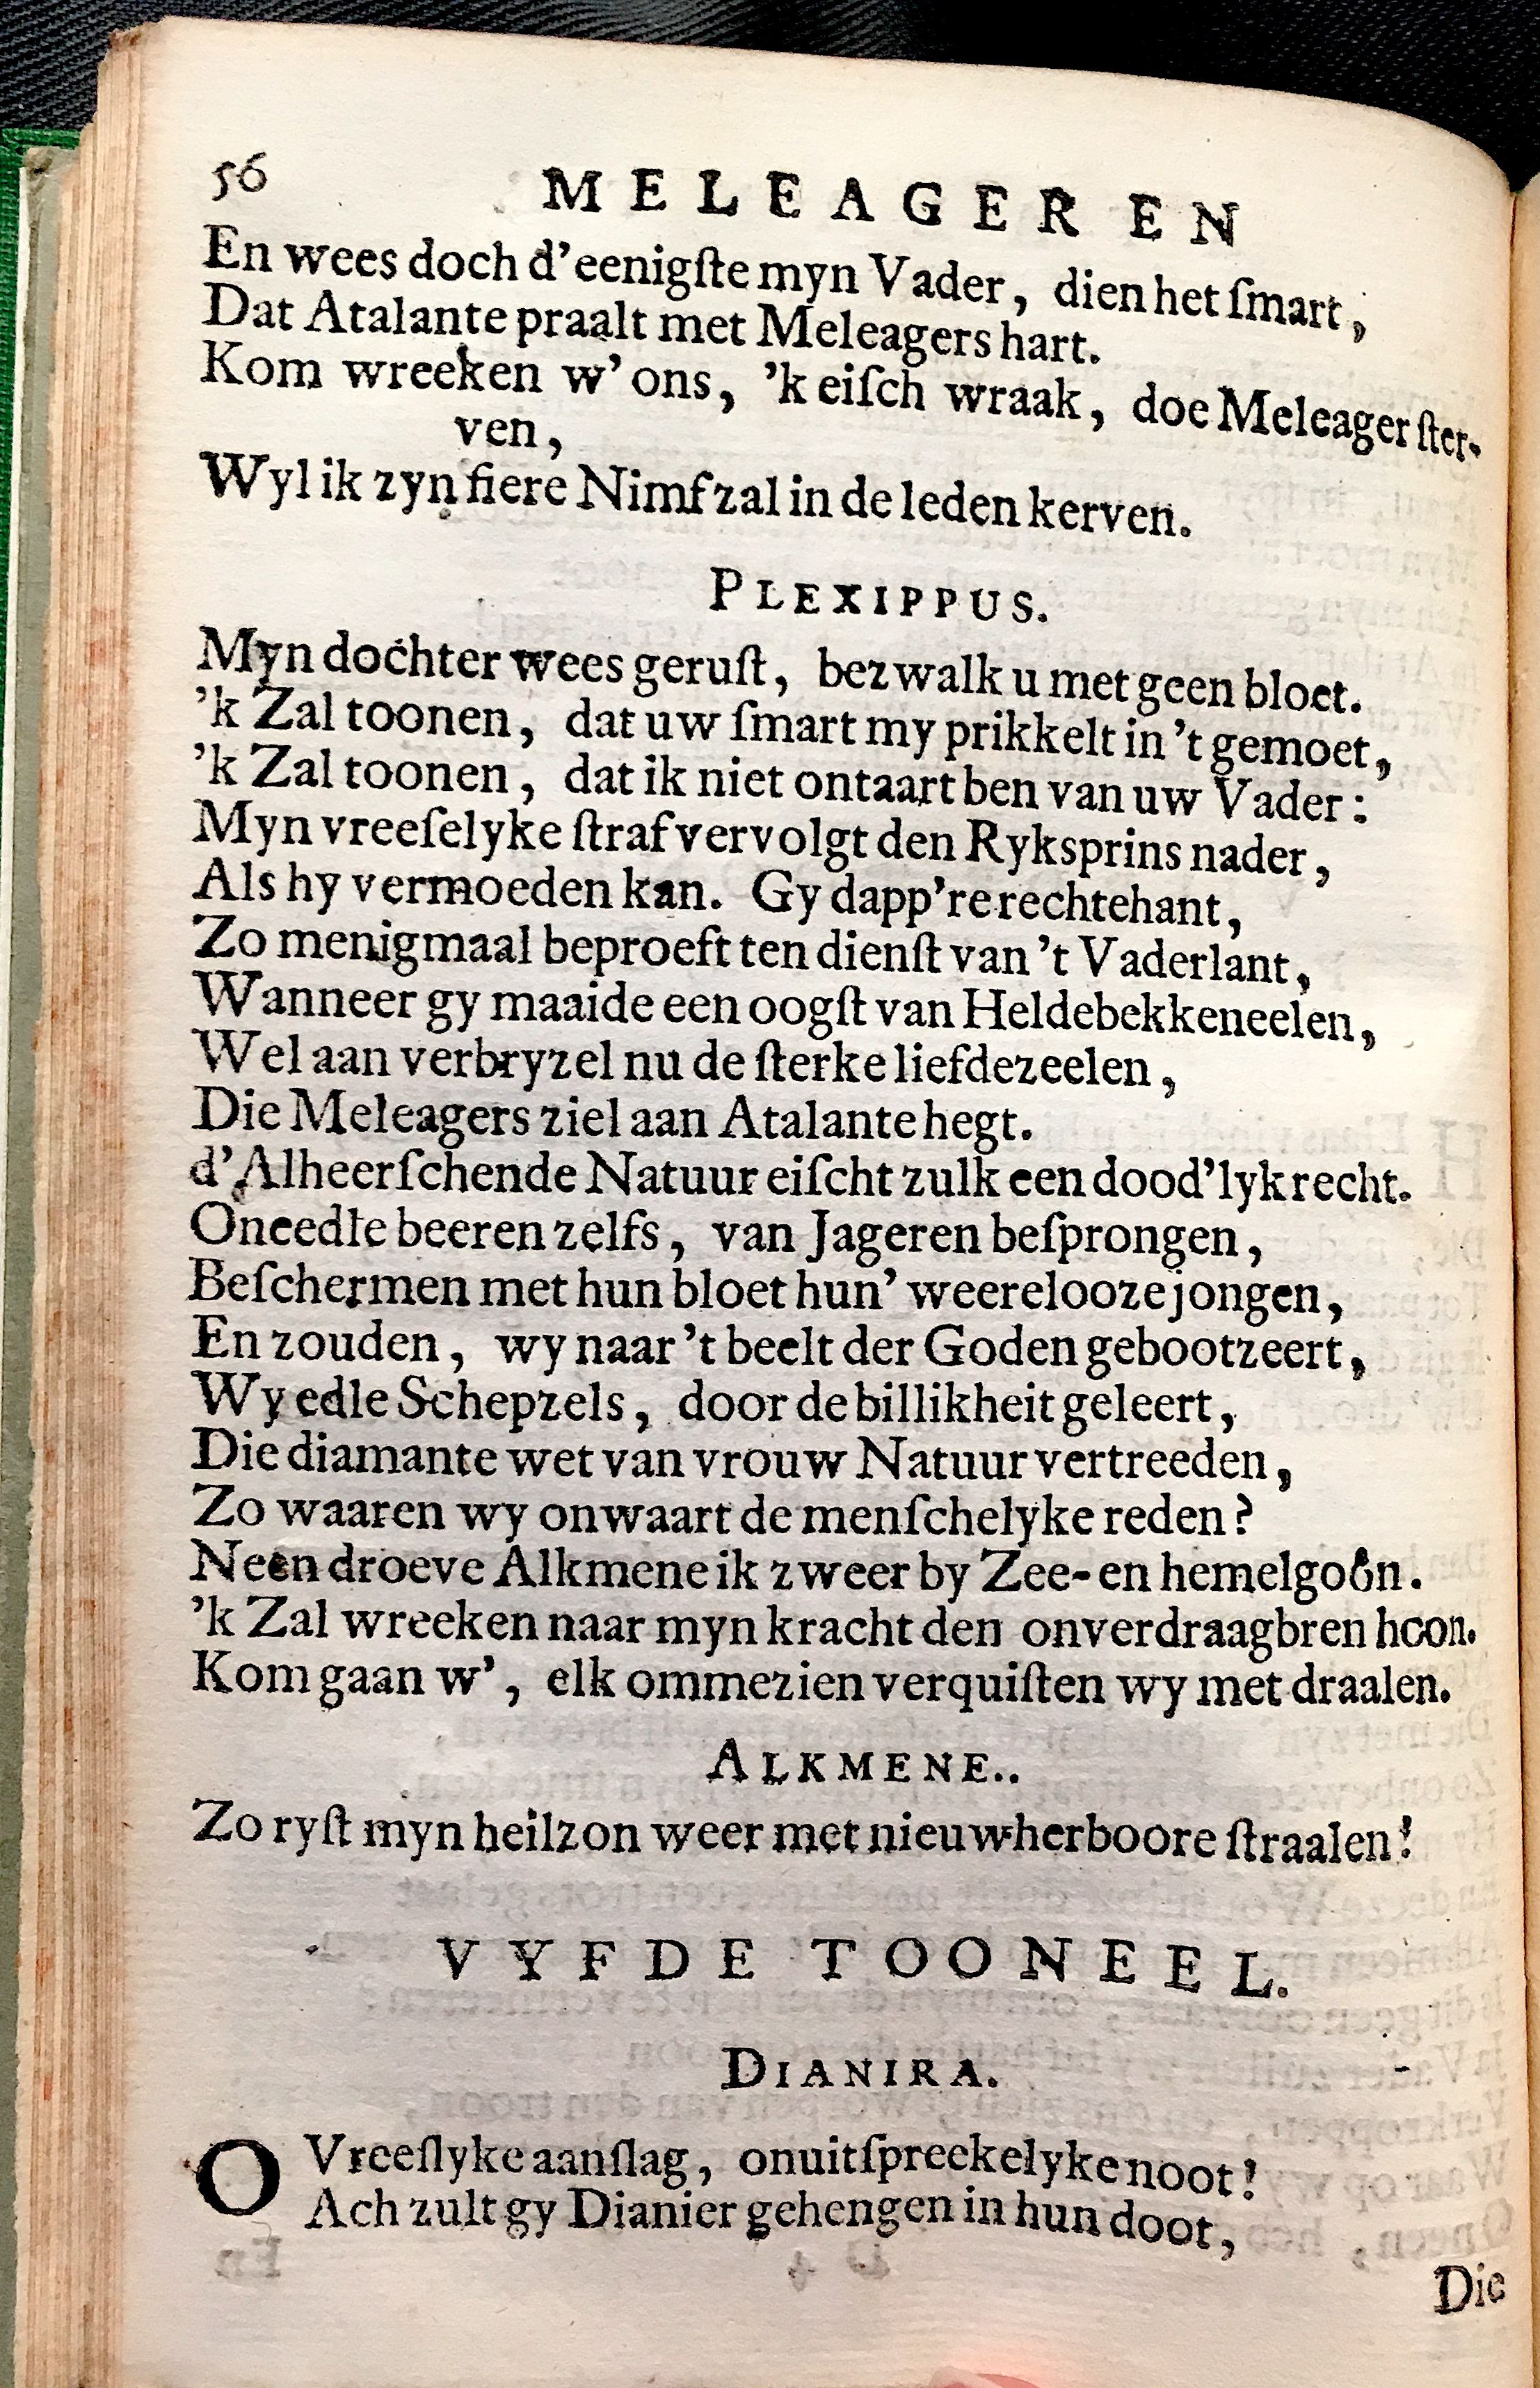 56
MELEAGER EN
En wees doch d'eenigſte myn Vader, dien het ſmart,
Dat Atalante praalt met Meleagers hart.
Kom wreeken w' ons, 'k eiſch wraak, doe Meleager ſter-
ven,
Wyl ik zyn fiere Nimf zal in de leden kerven.
PLEXIPPUS.
Myn dochter wees geruſt, bezwalk u met geen bloet.
'k Zal toonen, dat uw ſmart my prikkelt in 't gemoet,
'k Zal toonen, dat ik niet ontaart ben van uw Vader:
Myn vreeſelyke ſtraf vervolgt den Ryksprins nader,
Als hy vermoeden kan. Gy dapp're rechtehant,
Zo menigmaal beproeft ten dienſt van 't Vaderlant,
Wanneer gy maaide een oogſt van Heldebekkeneelen,
Wel aan verbryzel nu de ſterke liefdezeelen,
Die Meleagers ziel aan Atalante hegt.
d'Alheerſchende Natuur eiſcht zulk een dood'lyk recht.
Oneedle beeren zelfs, van Jageren beſprongen,
Beſchermen met hun bloet hun' weerelooze jongen,
En zouden, wy naar 't beelt der Goden gebootzeert,
Wy edle Schepzels, door de billikheit geleert,
Die diamante wet van vrouw Natuur vertreeden,
Zo waaren wy onwaart de menſchelyke reden?
Neen droeve Alkmene ik zweer by Zee- en hemelgoôn.
'k Zal wreeken naar myn kracht den onverdraagbren hoon.
Kom gaan w', elk ommezien verquiſten wy met draalen.
ALKMENE..
Zo ryſt myn heilzon weer met nieuwherboore ſtraalen!
VYFDE TOONEEL.
DIANIRA.
O Vreeſlyke aanſlag, onuitſpreekelyke noot!
Ach zult gy Dianier gehengen in hun doot,
Die